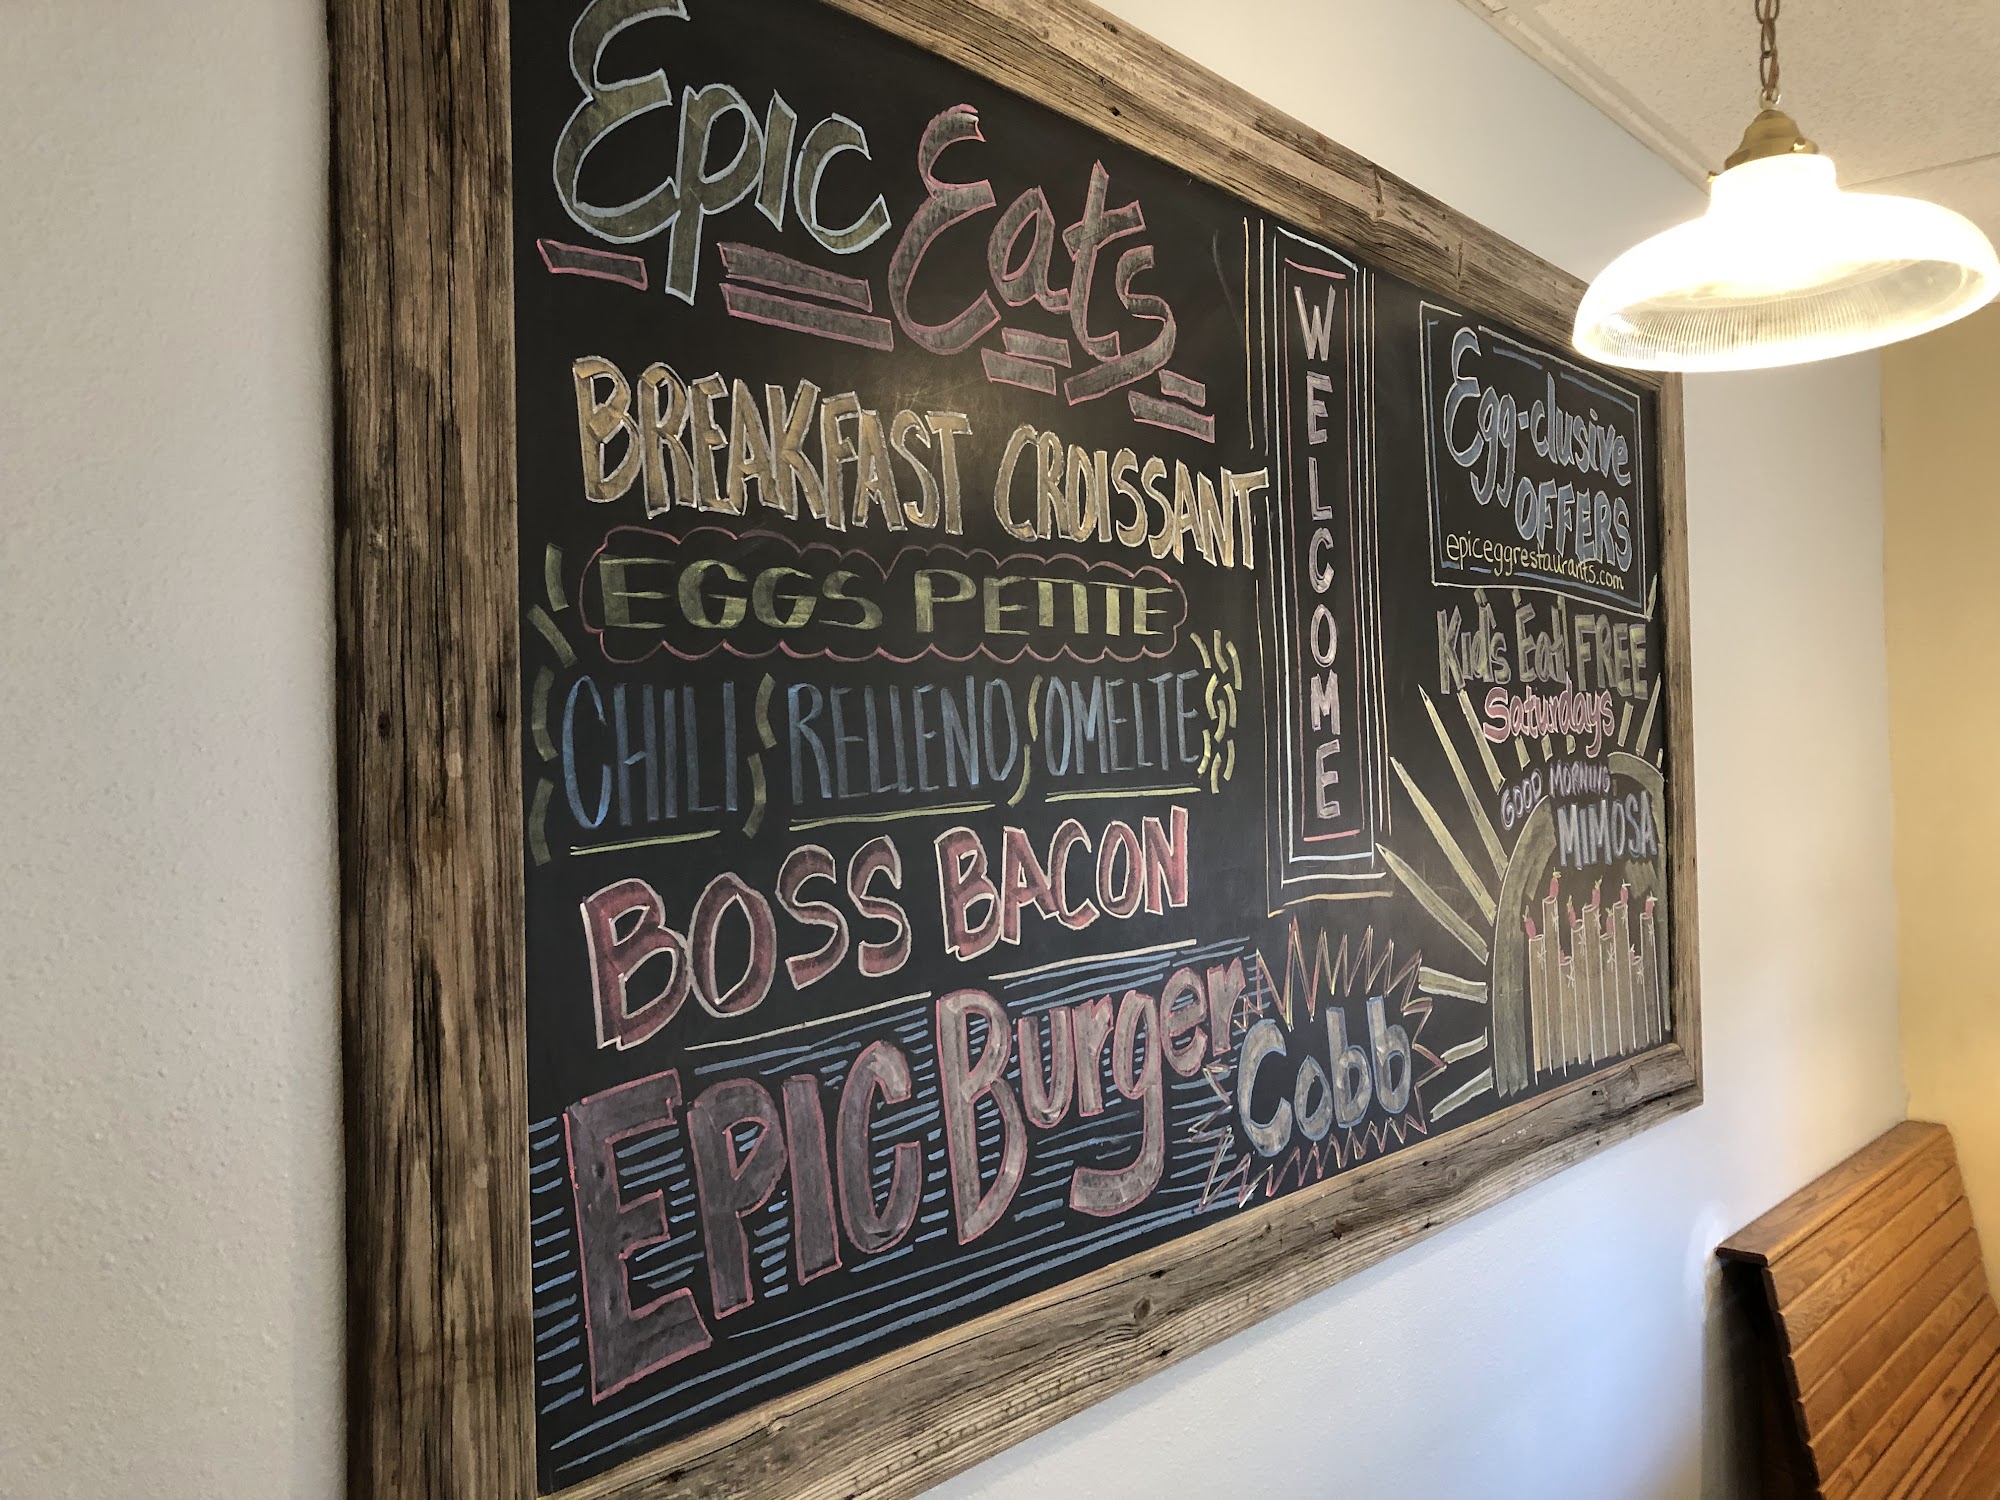 Epic Eats
BREAKFAST CROISSANT
EGGS PETITE
CHILI RELLENO OMELTE
BOSS BACON
EPIC Burger
Cobb
WELCOME
Egg-clusive
OFFERS
epiceggrestaurants.com
Kid's Eat FREE
Saturdays
GOOD MORNING,
MIMOSA